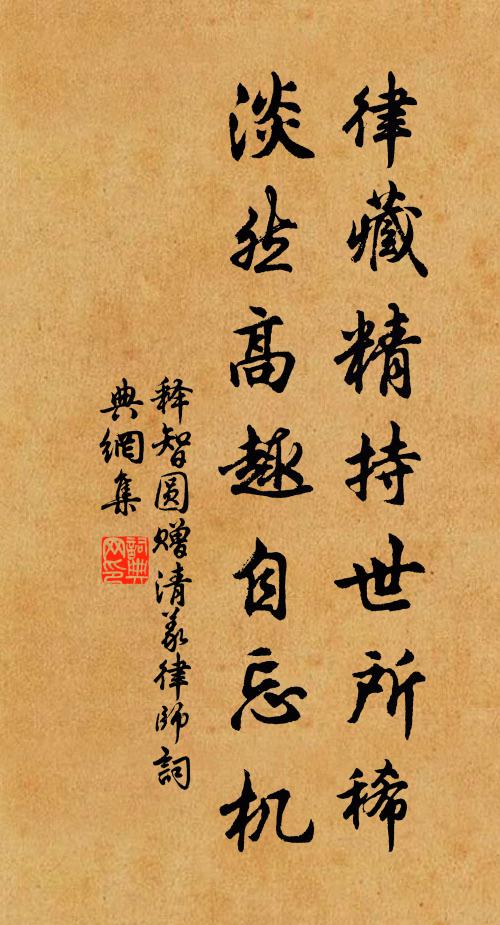 律藏精持世所稀
淡然高趣自忘机
释智圆赠清义律师詞
典網集
詞典
网印